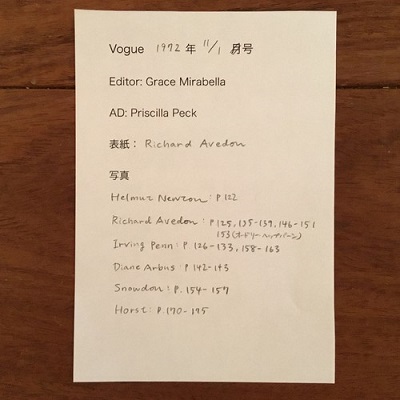 Vogue 1972 年 11/1 号
Editor: Grace Mirabella
AD: Priscilla Peck
表紙： Richard Avedon
写真
Helmut Newton: P122
Richard Avedon: P125, 135-139, 146-151
153(オードリーヘップバーン)
Irving Penn: P. 126-133, 158-163
Diane Arbus: P142-143
Snowdon: P. 154-157
Horst: P. 190-195